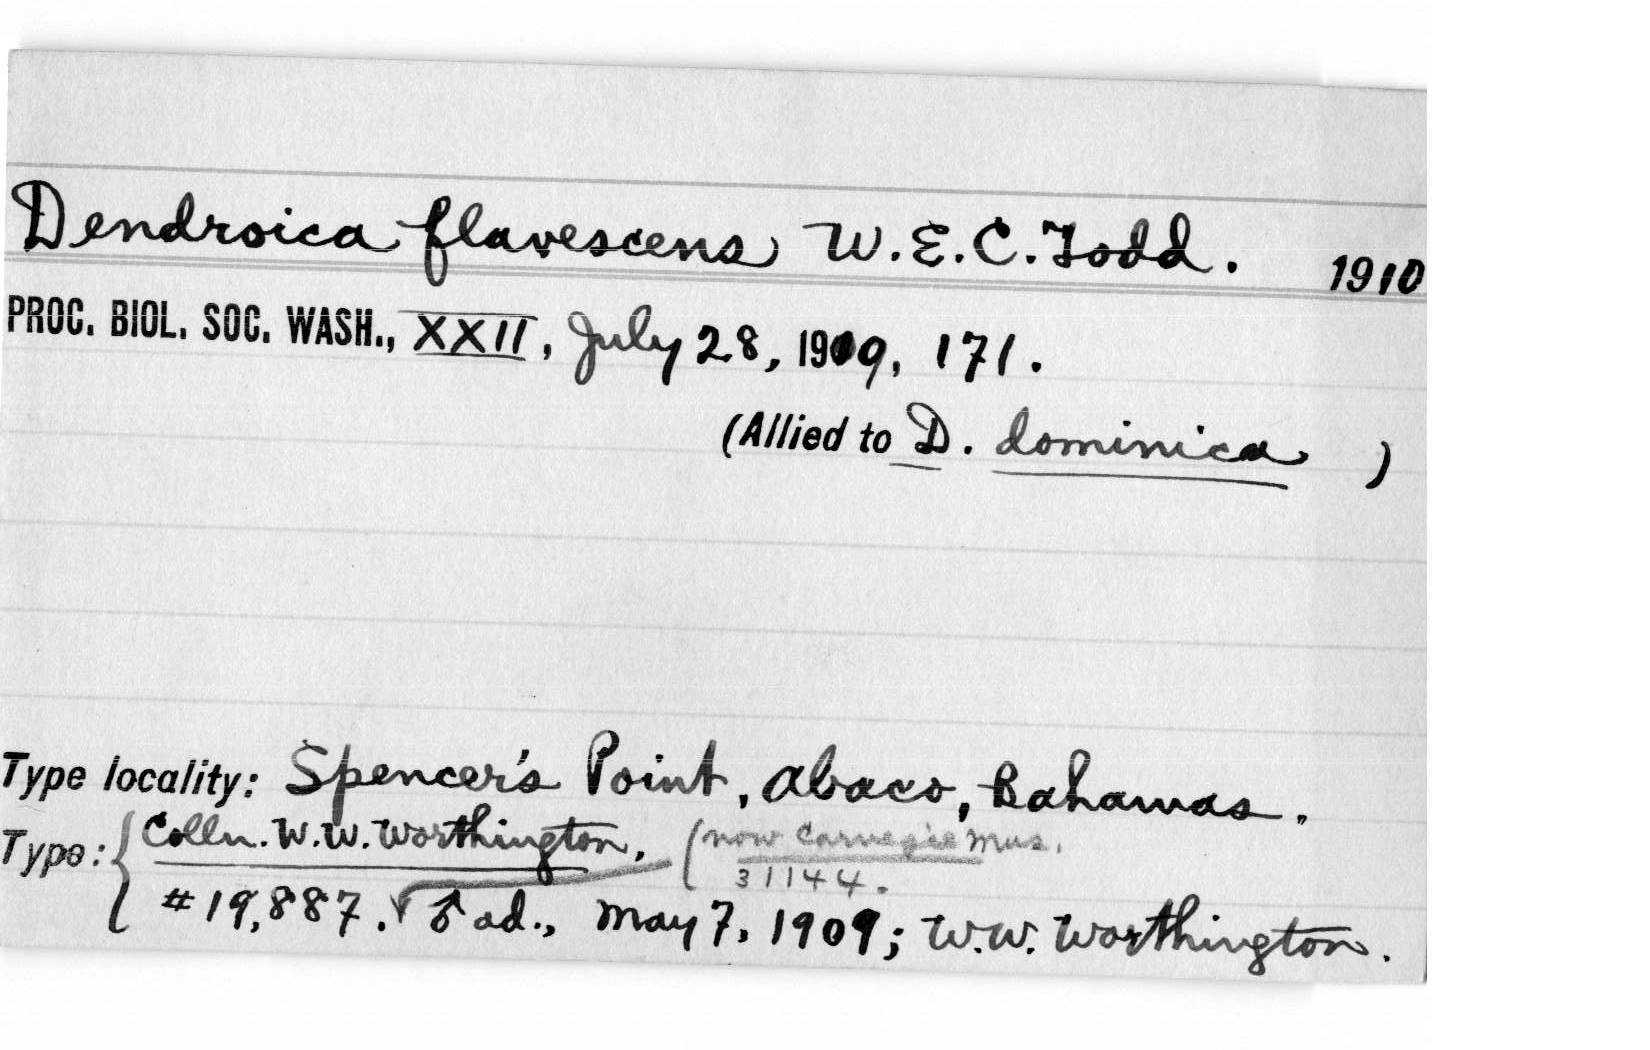 Dendroica flavescens W.E.C. Todd. 1910
PROC. BIOL. SOC. WASH., XXII, July 28, 1909, 171.
(Allied to D. dominica )
Type locality: Spencer's Point, Abaco, Bahamas.
Type: { Colln. W.W. Worthington, (now Carnegie Mus.
31144.
#19,887. ♂ ad., May 7, 1909; W.W. Worthington.